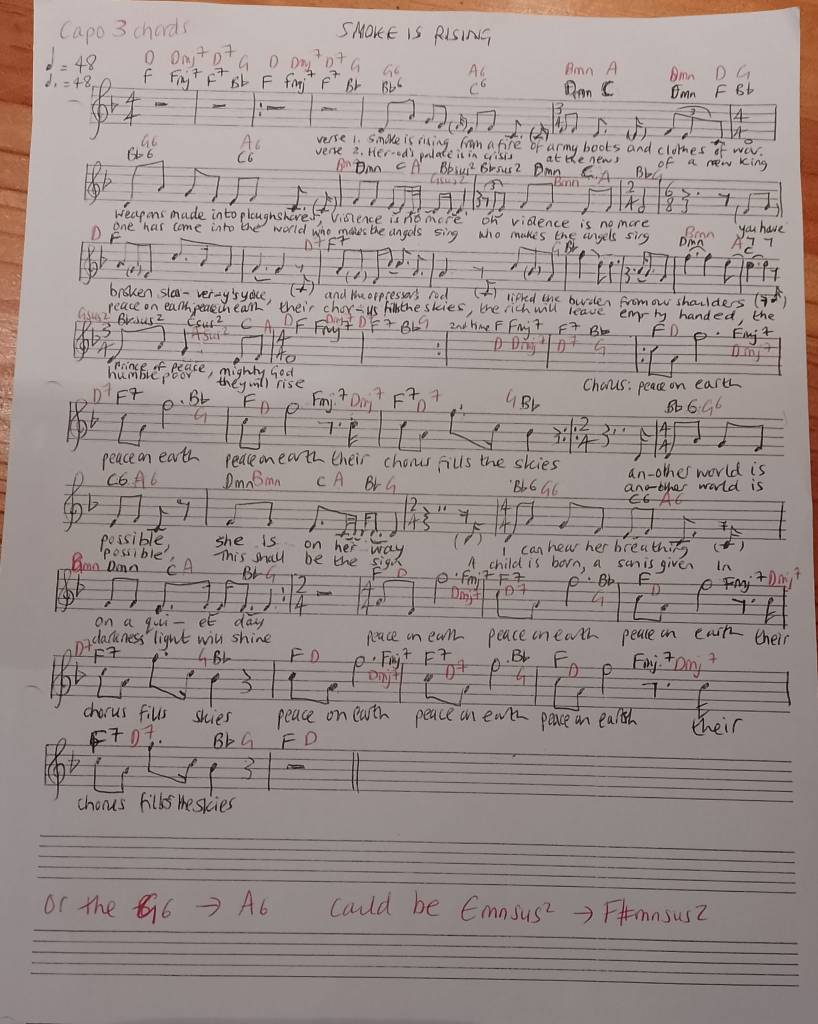 Capo 3 chords SMOKE IS RISING
♩ = 48
♩. = 48
D Dmj7 D7 G D Dmj7 D7 G G6 A6 Bmn A Bmn D G
F Fmj7 F7 Bb F Fmj7 F7 Bb Bb6 C6 Dmn C Dmn F Bb
verse 1. Smoke is rising from a fire of army boots and clothes of war.
verse 2. Her-od's palace is in crisis at the news of a new king
G6 A6 Bmn A Gsus2 Bmn A G
Bb6 C6 Dmn C Bbsus2 Bbsus2 Dmn C Bb
weapons made into ploughshares, violence is no more oh violence is no more you have
one has come into the world who makes the angels sing who makes the angels sing
D D7 G Bmn A
F F7 Bb Dmn C
broken slav-ver-y's yoke, and the oppressor's rod lifted the burden from our shoulders
peace on earth, peace on earth, their chor-us fills the skies, the rich will leave empty handed, the
Gsus2 Asus2 A D Dmj7 D7 G D Dmj7 D7 G D Dmj7
Bbsus2 Csus2 C F Fmj7 F7 Bb 2nd time F Fmj7 F7 Bb F Fmj.7
Prince of peace, mighty God
humble poor they will rise
Chorus: peace on earth
D7 F7 Bb G F D Fmj.7 Dmj7 F7 D7 G Bb Bb6 G6
peace on earth peace on earth their chorus fills the skies an-other world is
another world is
C6 A6 Dmn Bmn C A Bb G Bb6 G6 C6 A6
possible, she is on her way I can hear her breathing
possible, this shall be the sign A child is born, a son is given In
Bmn Dmn C A Bb G F D Fmj7 Dmj7 F7 D7 Bb G F D Fmj7 Dmj7
on a qui-et day
darkness light will shine
peace on earth peace on earth peace on earth their
D7 F7 G Bb F D Fmj7 Dmj7 F7 D7 Bb G F D Fmj.7 Dmj7
chorus fills skies peace on earth peace on earth peace on earth their
F7 D7. Bb G F D
chorus fills the skies
or the G6 → A6 could be Emnsus2 → F#mnsus2